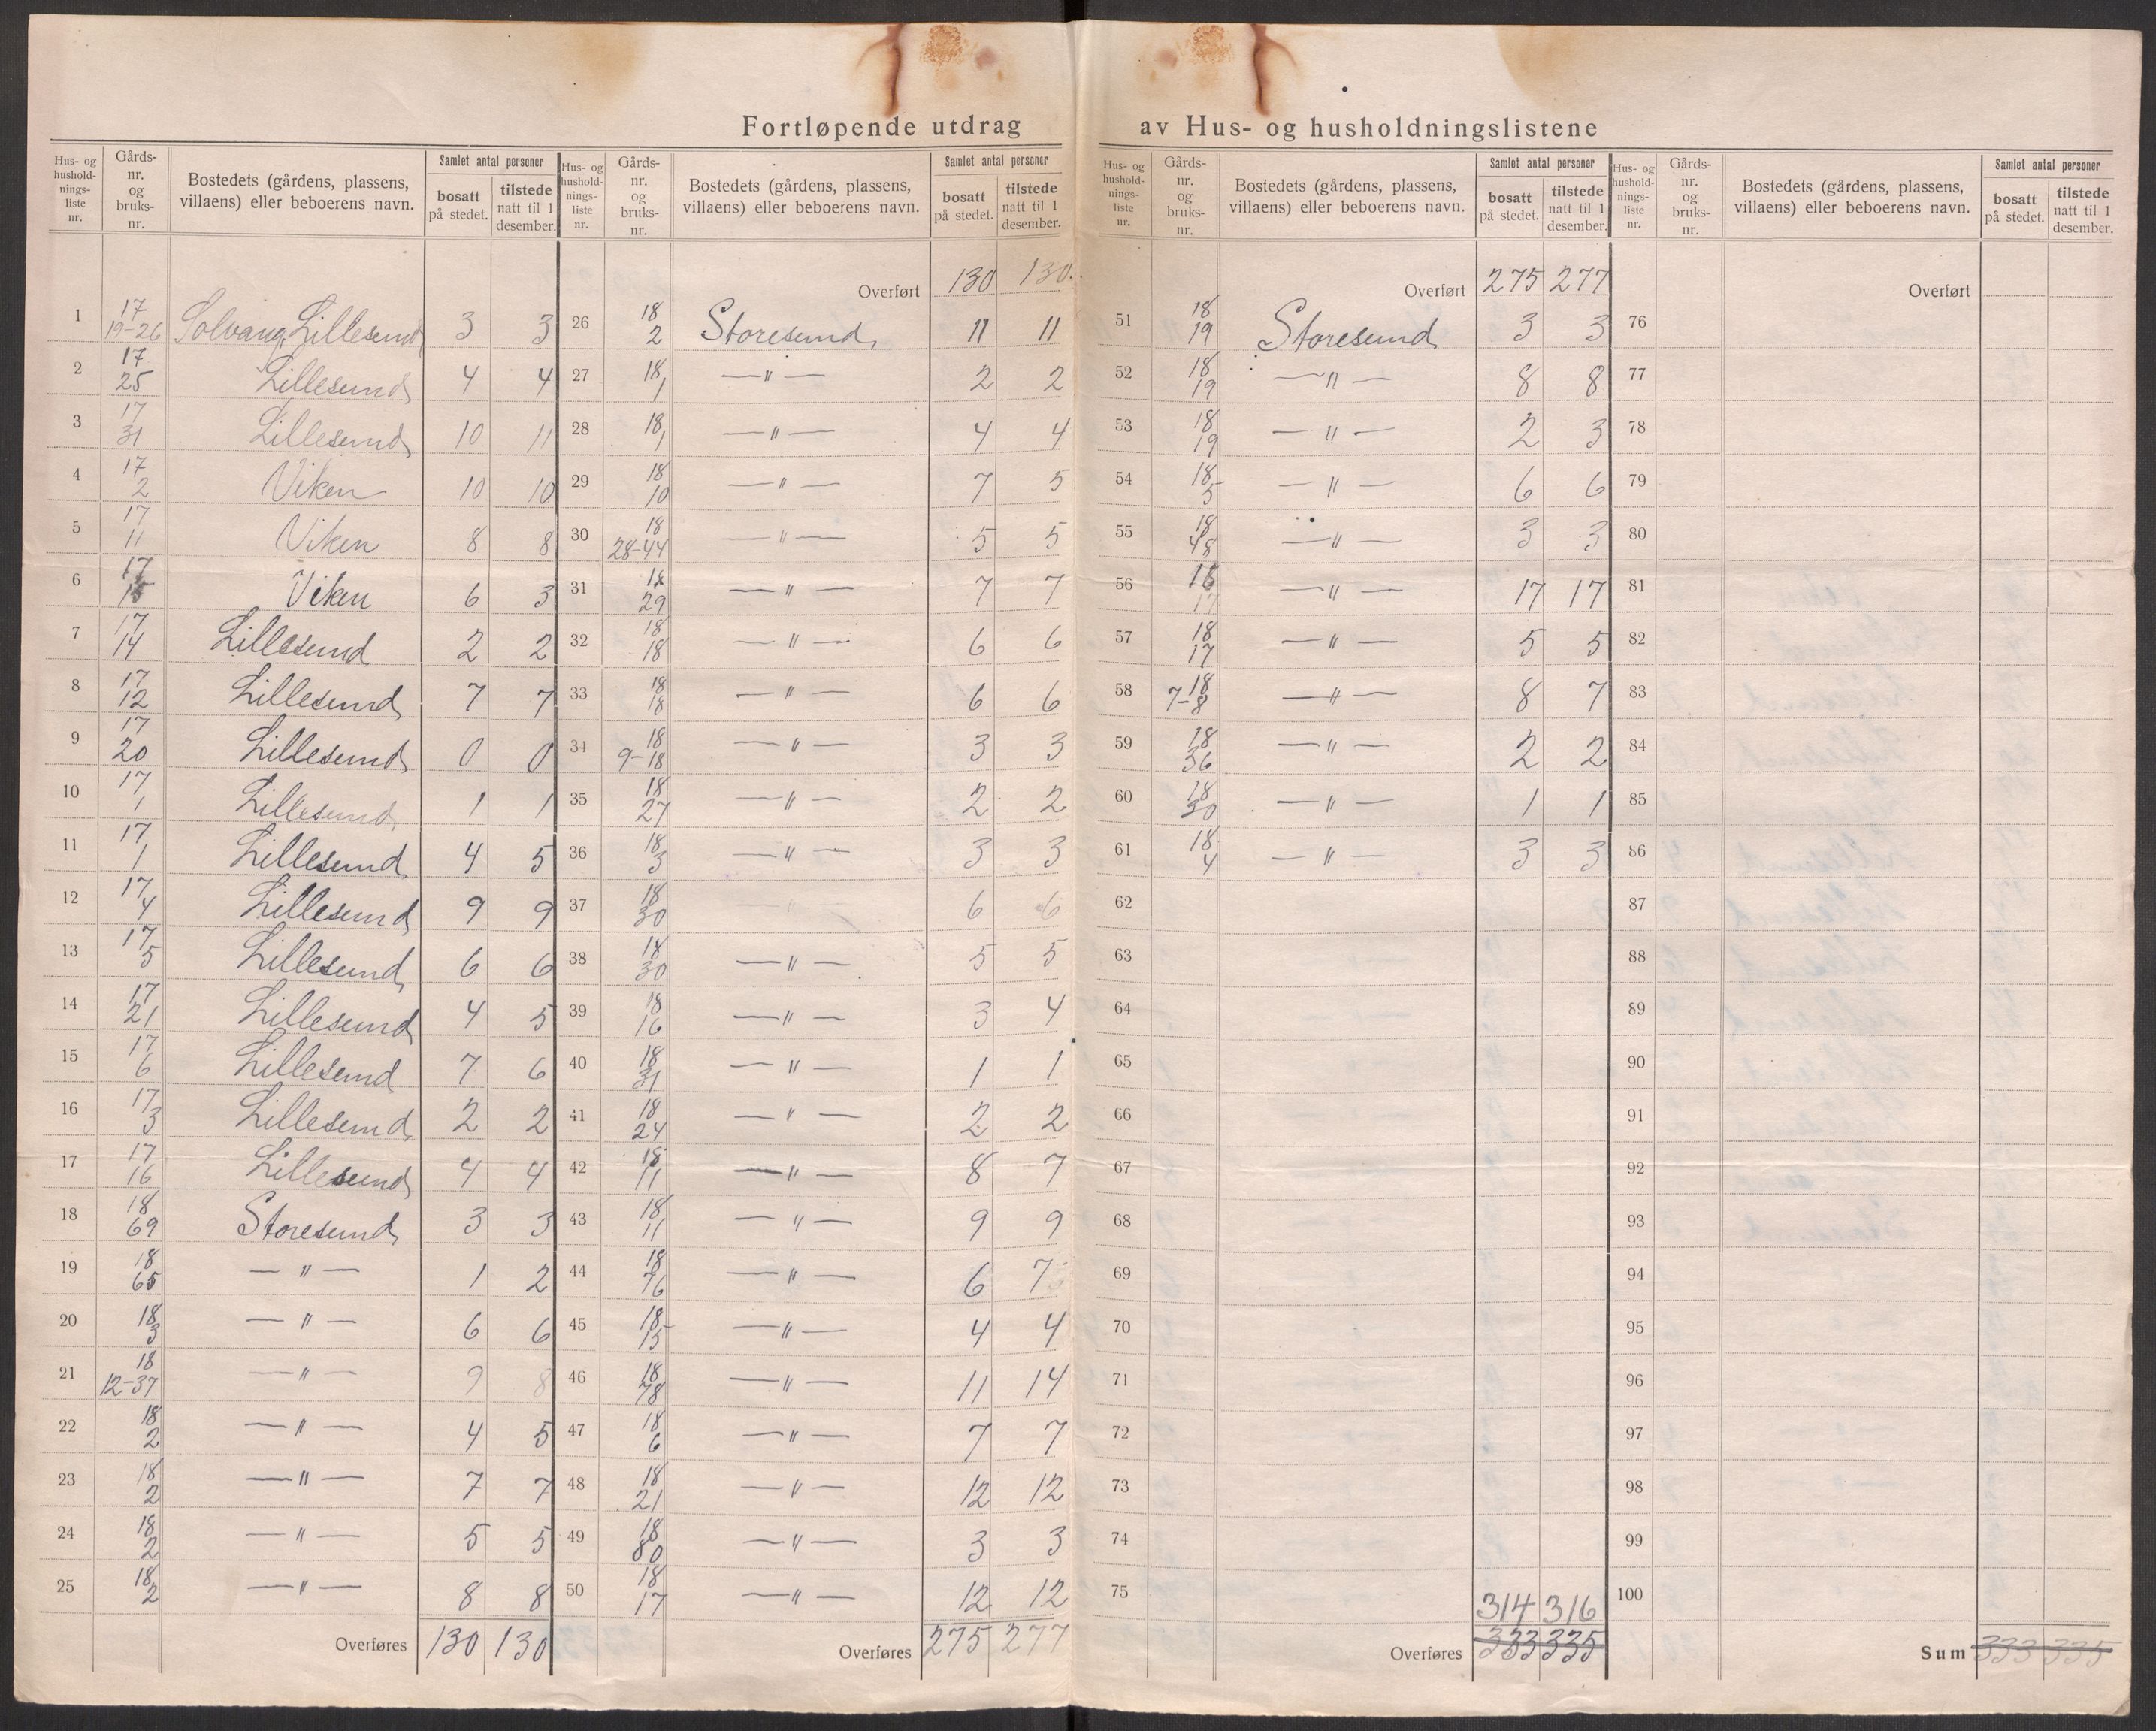 Fortløpende utdrag av Hus- og husholdningslistene
Hus- og hushold-nings-liste nr. | Gårds-nr. og bruks-nr. | Bostedets (gårdens, plassens, villaens) eller beboerens navn. | Samlet antal personer | bosatt på stedet. | tilstede natt til 1 desember.
1 | 17 / 19-26 | Solvang, Lillesund | 3 | 3
2 | 17 / 25 | Lillesund | 4 | 4
3 | 17 / 31 | Lillesund | 10 | 11
4 | 17 / 2 | Viken | 10 | 10
5 | 17 / 11 | Viken | 8 | 8
6 | 17 / 15 | Viken | 6 | 3
7 | 17 / 14 | Lillesund | 2 | 2
8 | 17 / 12 | Lillesund | 7 | 7
9 | 17 / 20 | Lillesund | 0 | 0
10 | 17 / 1 | Lillesund | 1 | 1
11 | 17 / 1 | Lillesund | 4 | 5
12 | 17 / 4 | Lillesund | 9 | 9
13 | 17 / 5 | Lillesund | 6 | 6
14 | 17 / 21 | Lillesund | 4 | 5
15 | 17 / 6 | Lillesund | 7 | 6
16 | 17 / 3 | Lillesund | 2 | 2
17 | 17 / 16 | Lillesund | 4 | 4
18 | 18 / 69 | Storesund | 3 | 3
19 | 18 / 65 | — " — | 1 | 2
20 | 18 / 3 | — " — | 6 | 6
21 | 18 / 12-37 | — " — | 9 | 8
22 | 18 / 2 | — " — | 4 | 5
23 | 18 / 2 | — " — | 7 | 7
24 | 18 / 2 | — " — | 5 | 5
25 | 18 / 2 | — " — | 8 | 8
Overføres | 130 | 130
Hus- og hushold-nings-liste nr. | Gårds-nr. og bruks-nr. | Bostedets (gårdens, plassens, villaens) eller beboerens navn. | Samlet antal personer | bosatt på stedet. | tilstede natt til 1 desember.
Overført | 130 | 130.
26 | 18 / 2 | Storesund | 11 | 11
27 | 18 / 1 | — " — | 2 | 2
28 | 18 / 1 | — " — | 4 | 4
29 | 18 / 10 | — " — | 7 | 5
30 | 18 / 28-44 | — " — | 5 | 5
31 | 18 / 29 | — " — | 7 | 7
32 | 18 / 18 | — " — | 6 | 6
33 | 18 / 18 | — " — | 6 | 6
34 | 18 / 9-18 | — " — | 3 | 3
35 | 18 / 27 | — " — | 2 | 2
36 | 18 / 3 | — " — | 3 | 3
37 | 18 / 30 | — " — | 6 | 6
38 | 18 / 30 | — " — | 5 | 5
39 | 18 / 16 | — " — | 3 | 4
40 | 18 / 31 | — " — | 1 | 1
41 | 18 / 24 | — " — | 2 | 2
42 | 18 / 11 | — " — | 8 | 7
43 | 18 / 11 | — " — | 9 | 9
44 | 18 / 76 | — " — | 6 | 7
45 | 18 / 15 | — " — | 4 | 4
46 | 18 / 78 | — " — | 11 | 14
47 | 18 / 6 | — " — | 7 | 7
48 | 18 / 21 | — " — | 12 | 12
49 | 18 / 80 | — " — | 3 | 3
50 | 18 / 17 | — " — | 12 | 12
Overføres | 275 | 277
Hus- og hushold-nings-liste nr. | Gårds-nr. og bruks-nr. | Bostedets (gårdens, plassens, villaens) eller beboerens navn. | Samlet antal personer | bosatt på stedet. | tilstede natt til 1 desember.
Overført | 275 | 277
51 | 18 / 19 | Storesund | 3 | 3
52 | 18 / 19 | — " — | 8 | 8
53 | 18 / 19 | — " — | 2 | 3
54 | 18 / 5 | — " — | 6 | 6
55 | 18 / 48 | — " — | 3 | 3
56 | 18 / 17 | — " — | 17 | 17
57 | 18 / 17 | — " — | 5 | 5
58 | 18 / 7-8 | — " — | 8 | 7
59 | 18 / 36 | — " — | 2 | 2
60 | 18 / 30 | — " — | 1 | 1
61 | 18 / 4 | — " — | 3 | 3
62
63
64
65
66
67
68
69
70
71
72
73
74
75 | 314 | 316
Overføres | 333 | 335
Hus- og hushold-nings-liste nr. | Gårds-nr. og bruks-nr. | Bostedets (gårdens, plassens, villaens) eller beboerens navn. | Samlet antal personer | bosatt på stedet. | tilstede natt til 1 desember.
Overført
76
77
78
79
80
81
82
83
84
85
86
87
88
89
90
91
92
93
94
95
96
97
98
99
100
Sum | 333 | 335